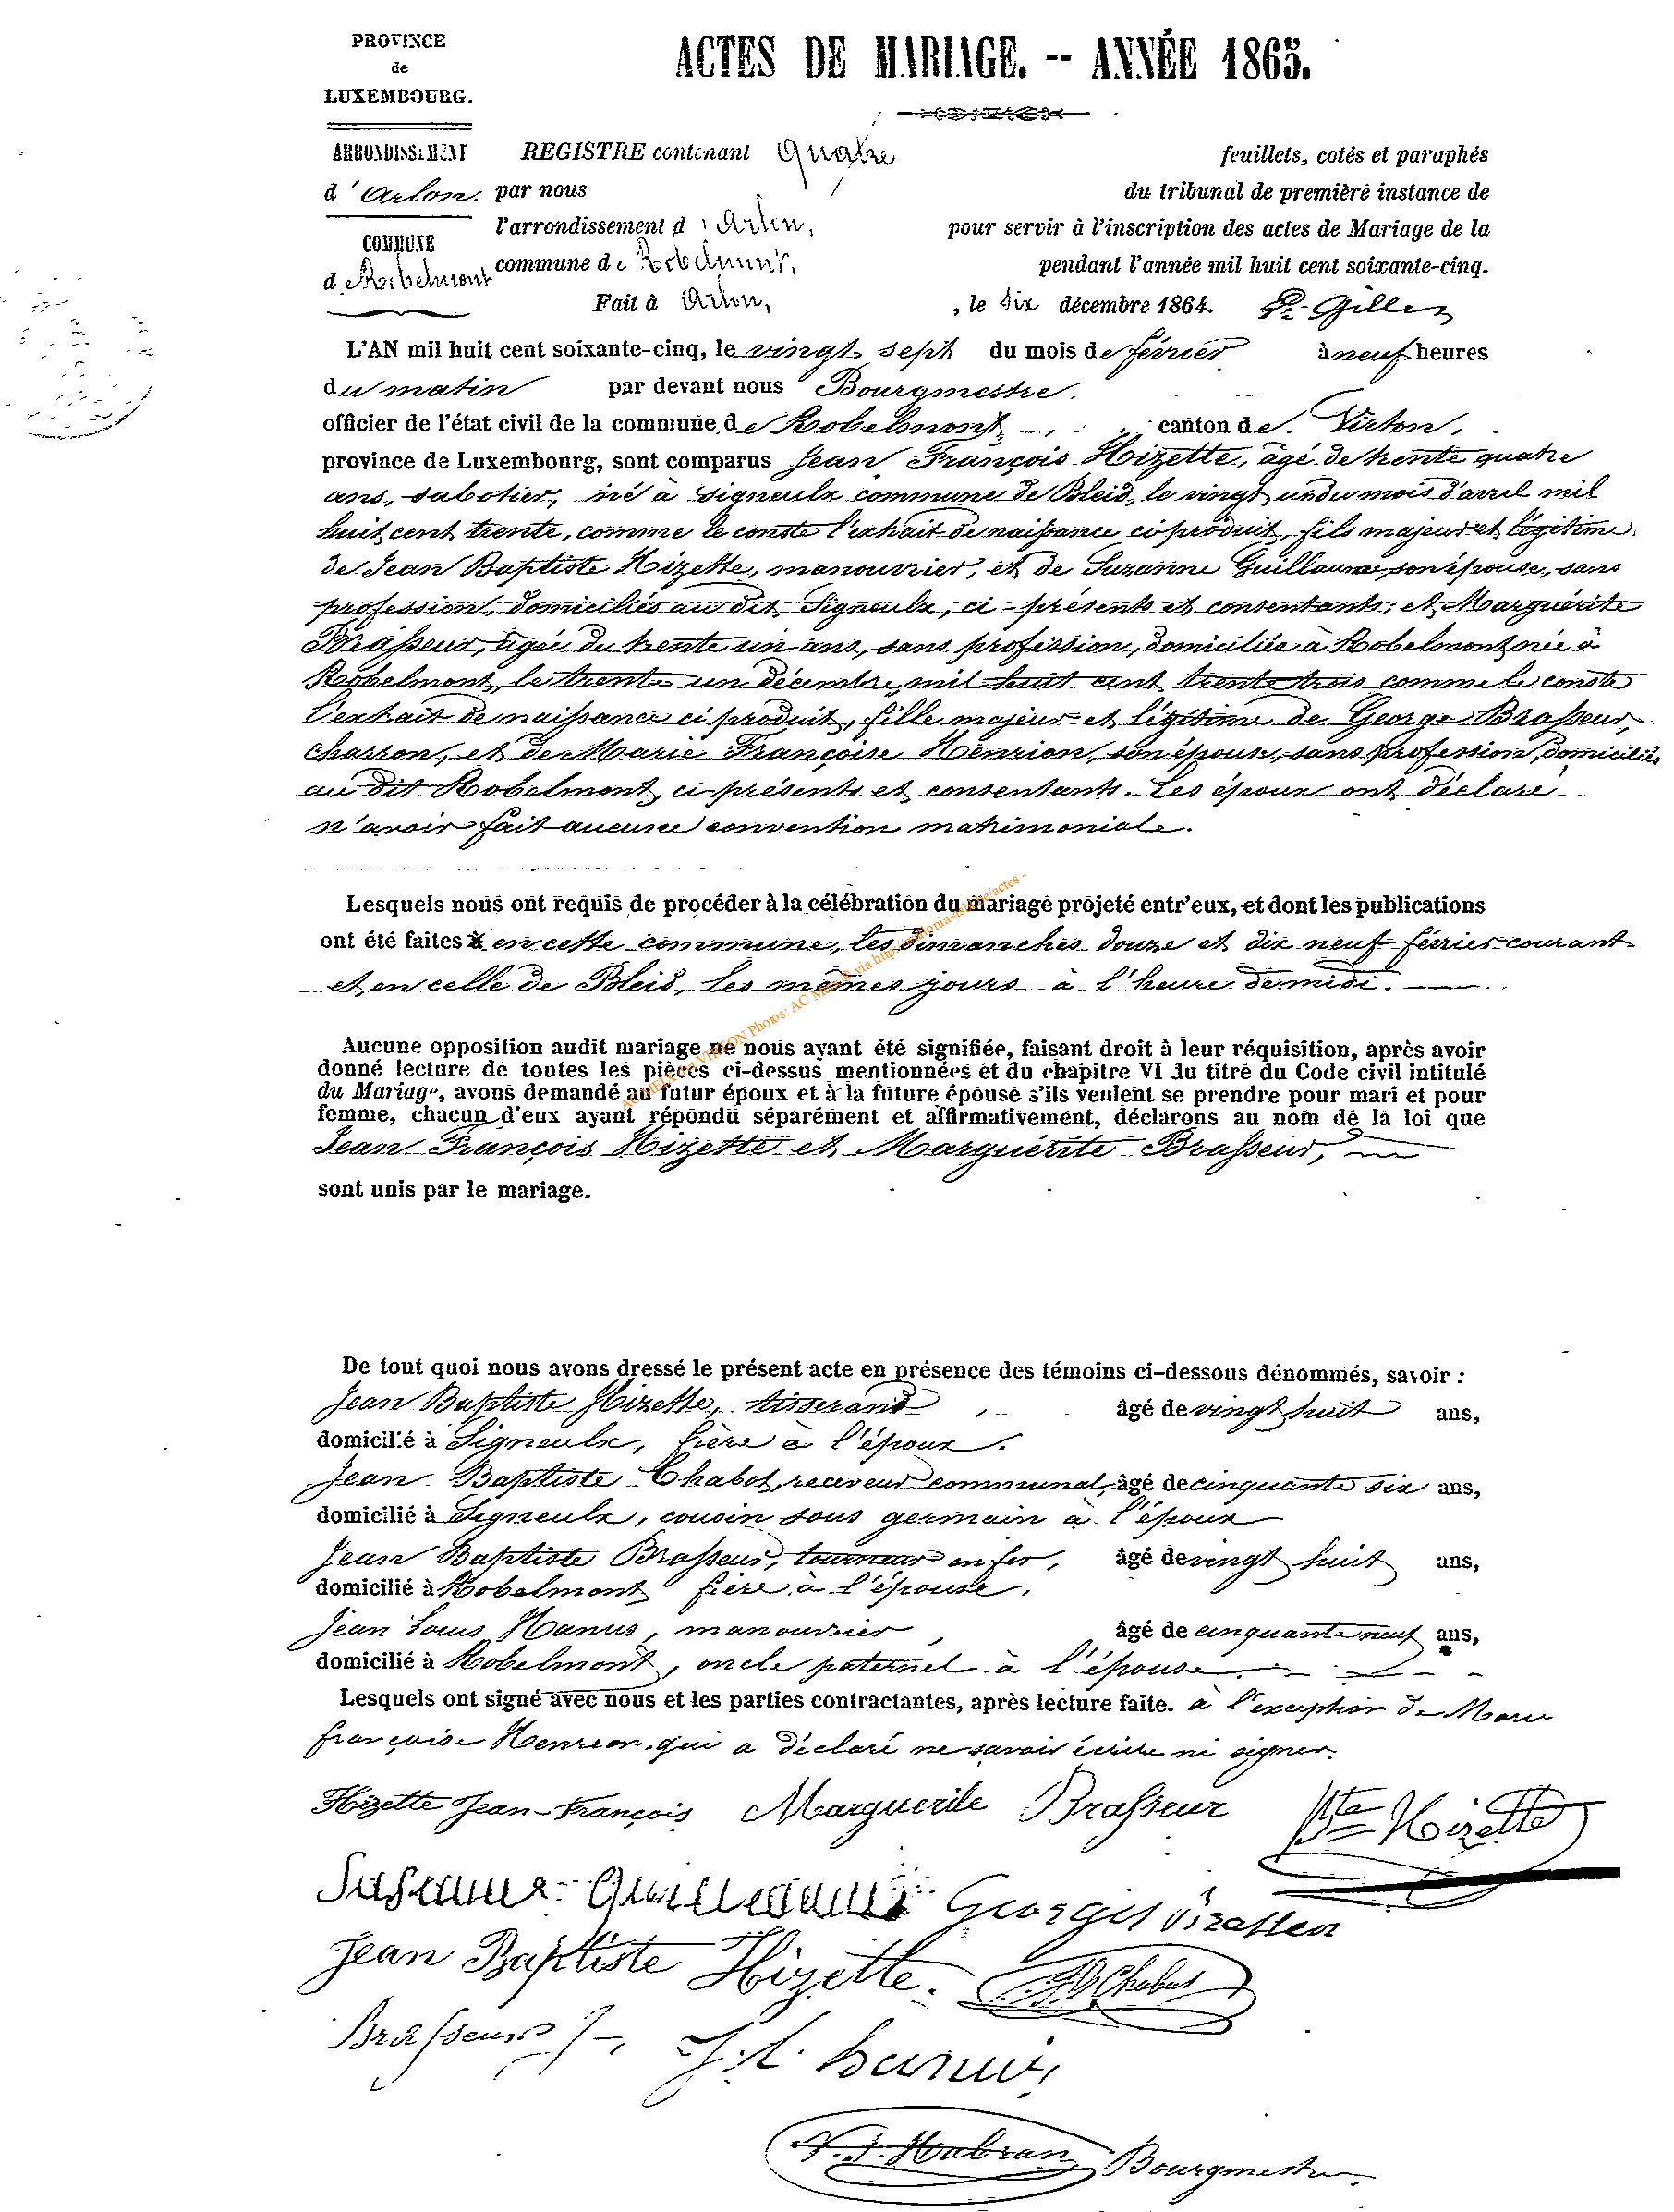 PROVINCE
de
LUXEMBOURG.
ACTES DE MARIAGE. -- ANNÉE 1865.
ARRONDISSEMENT
d'Arlon.
COMMUNE
de Robelmont
REGISTRE contenant Quatre feuillets, cotés et paraphés
par nous du tribunal de première instance de
l'arrondissement d'Arlon, pour servir à l'inscription des actes de Mariage de la
commune de Robelmont, pendant l'année mil huit cent soixante-cinq.
Fait à Arlon, , le dix décembre 1864. Gilles
L'AN mil huit cent soixante-cinq, le vingt sept du mois de février à neuf heures
du matin par devant nous Bourgmestre.
officier de l'état civil de la commune de Robelmont, canton de Virton,
province de Luxembourg, sont comparus Jean François Hizette, âgé de trente quatre
ans, sabotier, né à Signeulx commune de Bleid, le vingt un du mois d'avril mil
huit cent trente, comme le conste l'extrait de naissance ci produit, fils majeur et légitime
de Jean Baptiste Hizette, manouvrier, et de Suzanne Guillaume, son épouse, sans
profession, domiciliés au dit Signeulx, ci-présents et consentants; et Marguérite
Brasseur, agée de trente un ans, sans profession, domiciliée à Robelmont, née à
Robelmont, le trente un décembre mil huit cent trente trois comme le conste
l'extrait de naissance ci produit, fille majeur et légitime de George Brasseur,
charron, et de Marie Françoise Henrion, son épouse, sans profession, domiciliés
au dit Robelmont, ci-présents et consentants. Les époux ont déclaré
n'avoir fait aucune convention matrimoniale.
Lesquels nous ont requis de procéder à la célébration du mariage projeté entr'eux, et dont les publications
ont été faites en cette commune, les dimanches douze et dix neuf février courant
et en celle de Bleid, les mêmes jours à l'heure de midi.
Aucune opposition audit mariage ne nous ayant été signifiée, faisant droit à leur réquisition, après avoir
donné lecture de toutes les pièces ci-dessus mentionnées et du chapitre VI du titre du Code civil intitulé
du Mariage, avons demandé au futur époux et à la future épouse s'ils veulent se prendre pour mari et pour
femme, chacun d'eux ayant répondu séparément et affirmativement, déclarons au nom de la loi que
Jean François Hizette et Marguérite Brasseur,
sont unis par le mariage.
De tout quoi nous avons dressé le présent acte en présence des témoins ci-dessous dénommés, savoir :
Jean Baptiste Hizette, tisserand, âgé de vingt huit ans,
domicilié à Signeulx, frère à l'époux.
Jean Baptiste Chabot, receveur communal, âgé de cinquante six ans,
domicilié à Signeulx, cousin sous germain à l'époux
Jean Baptiste Brasseur, tourneur en fer, âgé de vingt huit ans,
domicilié à Robelmont frère à l'épouse.
Jean Louis Hanus, manouvrier, âgé de cinquante neuf ans,
domicilié à Robelmont, oncle paternel à l'épouse.
Lesquels ont signé avec nous et les parties contractantes, après lecture faite. à l'exception de Marie
françoise Henrion qui a déclaré ne savoir écrire ni signer.
Hizette Jean-François Marguerite Brasseur Bte Hizette
Susanne Guillaume Georges Brasseur
Jean Baptiste Hizette. JB Chabot
Brasseur J. L. hanus
Habran Bourgmestre